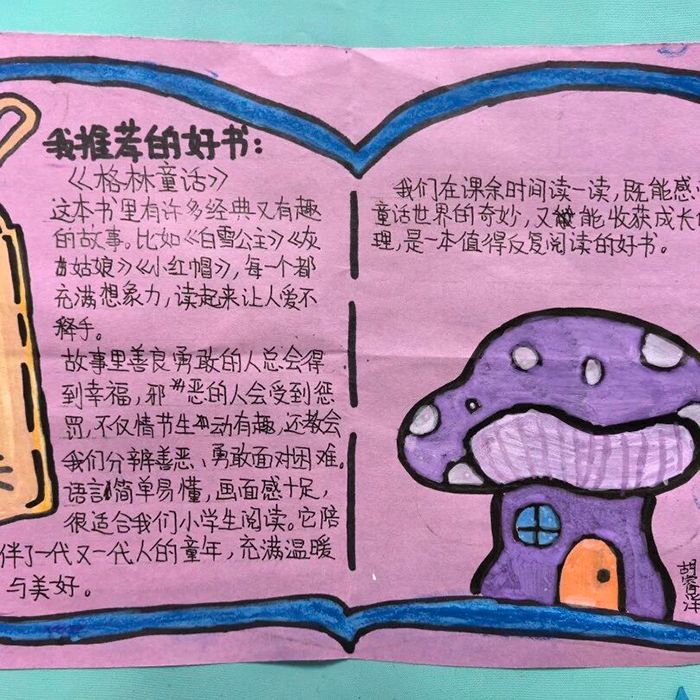 我推荐的好书:
《格林童话》
这本书里有许多经典又有趣
的故事。比如《白雪公主》《灰
姑娘》《小红帽》,每一个都
充满想象力,读起来让人爱不
释手。
故事里善良勇敢的人总会得
到幸福,邪恶的人会受到惩
罚,不仅情节生动有趣,还教会
我们分辨善恶、勇敢面对困难。
语言简单易懂,画面感十足,
很适合我们小学生阅读。它陪
伴了一代又一代人的童年,充满温暖
与美好。
我们在课余时间读一读,既能感
童话世界的奇妙,又能收获成长
理,是一本值得反复阅读的好书。
胡睿洋